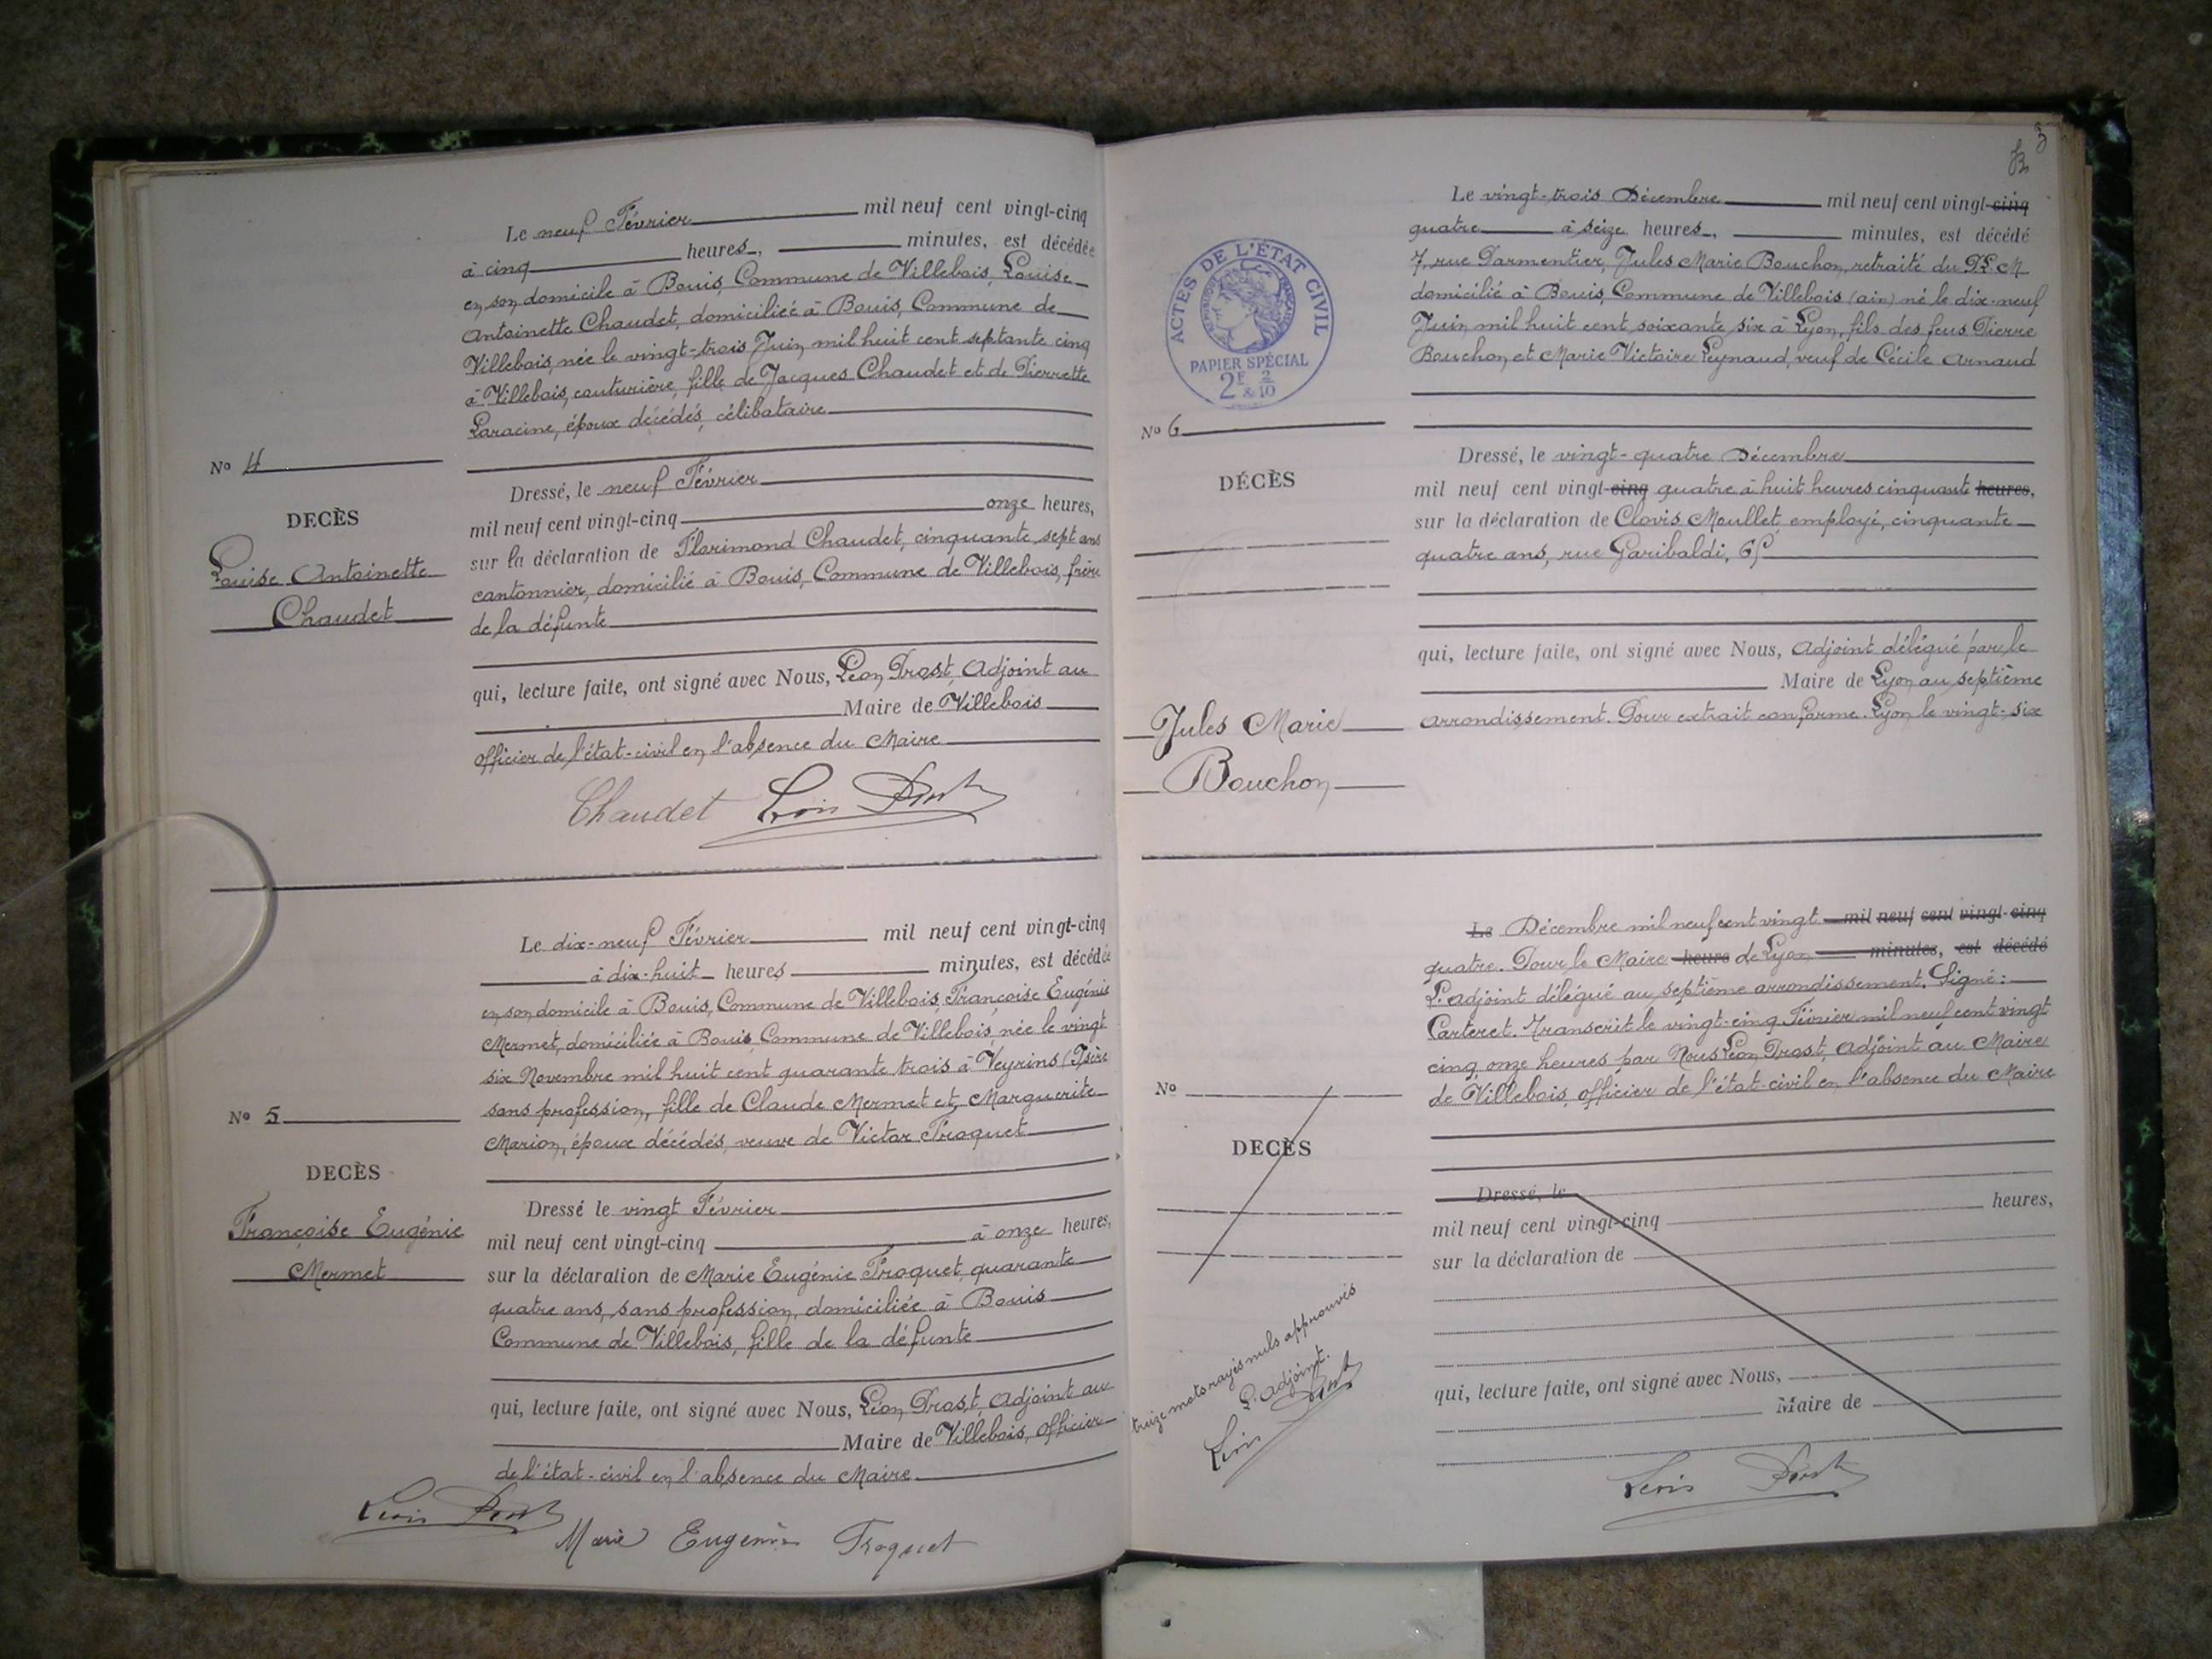 Le neuf Février mil neuf cent vingt-cinq
à cinq heures, minutes, est décédée
en son domicile à Bouis, Commune de Villebois, Louise
Antoinette Chaudet, domiciliée à Bouis, Commune de
Villebois, née le vingt-trois Juin mil huit cent septante cinq
à Villebois, couturière, fille de Jacques Chaudet et de Pierrette
Laracine, époux décédés, célibataire
No 4
DECÈS
Louise Antoinette
Chaudet
Dressé, le neuf Février
mil neuf cent vingt-cinq onze heures,
sur la déclaration de Florimond Chaudet, cinquante sept ans
cantonnier, domicilié à Bouis, Commune de Villebois, frère
de la défunte
qui, lecture faite, ont signé avec Nous, Léon Drost, Adjoint au
Maire de Villebois
officier de l'état-civil en l'absence du Maire
Chaudet Léon Drost
Le dix-neuf Février mil neuf cent vingt-cinq
à dix-huit heures minutes, est décédée
en son domicile à Bouis, Commune de Villebois, Françoise Eugénie
Mermet, domiciliée à Bouis, Commune de Villebois, née le vingt
six Novembre mil huit cent quarante trois à Veyrins (Isère
sans profession, fille de Claude Mermet et Marguerite
Marion, époux décédés, veuve de Victor Troquet
No 5
DECÈS
Françoise Eugénie
Mermet
Dressé le vingt Février
mil neuf cent vingt-cinq à onze heures,
sur la déclaration de Marie Eugénie Troquet, quarante
quatre ans, sans profession, domiciliée à Bouis
Commune de Villebois, fille de la défunte
qui, lecture faite, ont signé avec Nous, Léon Drost, Adjoint au
Maire de Villebois, officier
de l'état-civil en l'absence du Maire
Léon Drost
Marie Eugénie Troquet
3
ACTES DE L'ÉTAT CIVIL
PAPIER SPÉCIAL
2F & 2/10
Le vingt-trois Décembre mil neuf cent vingt-cinq
quatre à seize heures, minutes, est décédé
7, rue Parmentier, Jules Marie Bouchon, retraité du P.L.M
domicilié à Bouis, Commune de Villebois (ain) né le dix-neuf
Juin mil huit cent soixante six à Lyon, fils des feus Pierre
Bouchon et Marie Victoire Leynaud, veuf de Cécile Arnaud
No 6
DÉCÈS
Jules Marie
Bouchon
Dressé, le vingt-quatre Décembre
mil neuf cent vingt-cinq quatre à huit heures cinquante heures,
sur la déclaration de Clovis Moullet, employé, cinquante
quatre ans, rue Garibaldi,
qui, lecture faite, ont signé avec Nous, Adjoint délégué par le
Maire de Lyon au septième
arrondissement. Pour extrait conforme. Lyon le vingt-six
Le Décembre mil neuf cent vingt mil neuf cent vingt-cinq
quatre. Pour le Maire heure de Lyon minutes, est décédé
L'adjoint délégué au septième arrondissement. Signé:
Carteret. Transcrit le vingt-cinq Février mil neuf cent vingt
cinq, onze heures par Nous Léon Drost, Adjoint au Maire
de Villebois, officier de l'état-civil en l'absence du Maire
No
DECÈS
Dressé, le
mil neuf cent vingt-cinq heures,
sur la déclaration de
qui, lecture faite, ont signé avec Nous,
Maire de
treize mots rayés nuls approuvés
L'adjoint.
Léon Drost
Léon Drost